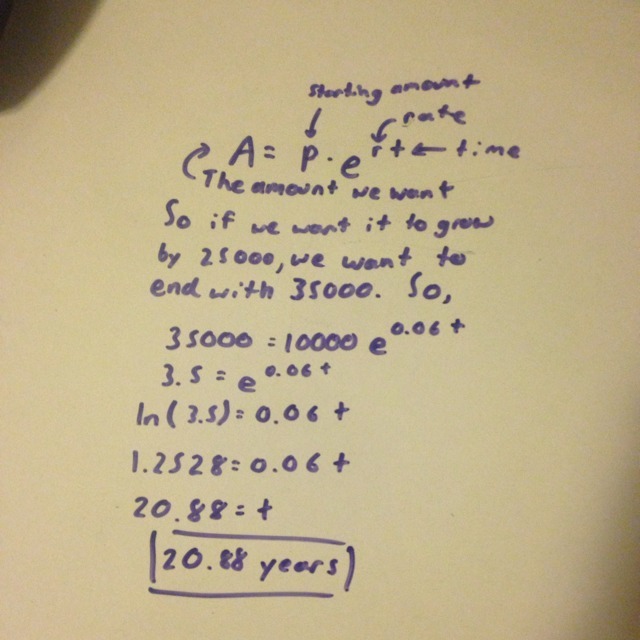 starting amount
rate
A = P · e^rt ← time
The amount we want
So if we want it to grow
by 25000, we want to
end with 35000. So,
35000 = 10000 e^0.06t
3.5 = e^0.06t
ln(3.5) = 0.06t
1.2528 = 0.06t
20.88 = t
20.88 years